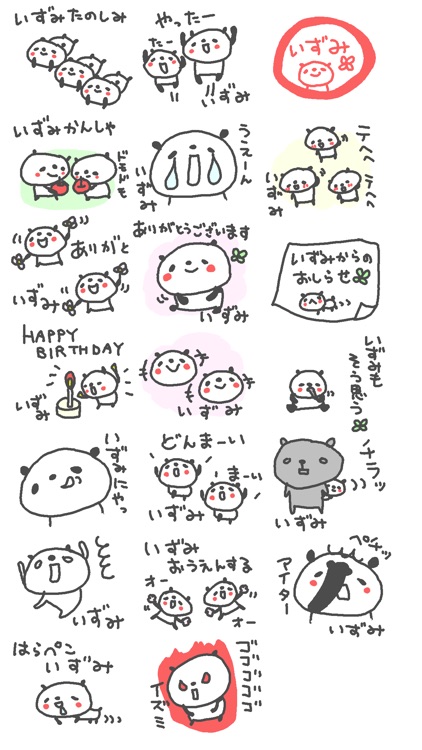 いずみたのしみ
やったー
たー
いずみ
いずみ
いずみかんしゃ
ドモドモ
うえーん
いずみ
テヘヘ
いずみ
テヘヘ
ありがと
いずみ
ありがとうございます
いずみ
いずみからの
おしらせ
HAPPY
BIRTHDAY
いずみ
いずみ
いずみも
そう思う
いずみにやっ
どんまーい
まーい
いずみ
チラッ
いずみ
いずみ
いずみ
おうえんする
オー
オー
ペチッ
アイター
いずみ
はらぺこ
いずみ
ゴゴゴゴゴ
イズミ